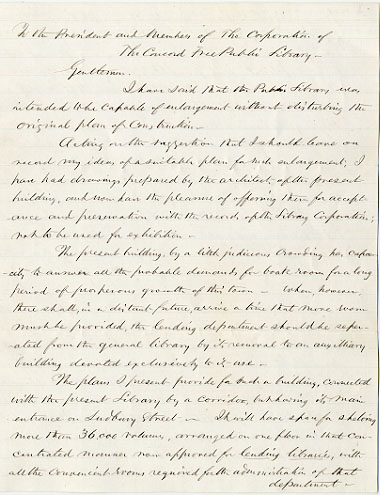 To the President and Members of The Corporation of
The Concord Free Public Library—
Gentlemen.
I have said that the Public Library was
intended to be capable of enlargement without disturbing the
original plan of Construction—
Acting on the suggestion that I should leave on
record my ideas of a suitable plan for such enlargement, I
have had drawings prepared by the architect of the present
building, and now have the pleasure of offering them for accept-
ance and preservation with the records of the Library Corporation;
not to be used for exhibition—
The present building, by a little judicious crowding has capa-
city to answer all the probable demands for book room for a long
period of prosperous growth of this town— When, however,
there shall, in a distant future, arrive a time that more room
must be provided, the lending department should be separ-
ated from the general library by its removal to an auxiliary
building devoted exclusively to its use—
The plans I present provide for such a building, connected
with the present Library by a corridor, but having its main
entrance on Sudbury Street— It will have space for shelving
more than 36,000 volumes, arranged on one floor in that con-
centrated manner now approved for lending libraries, with
all the convenient rooms required for the administration of that
department—